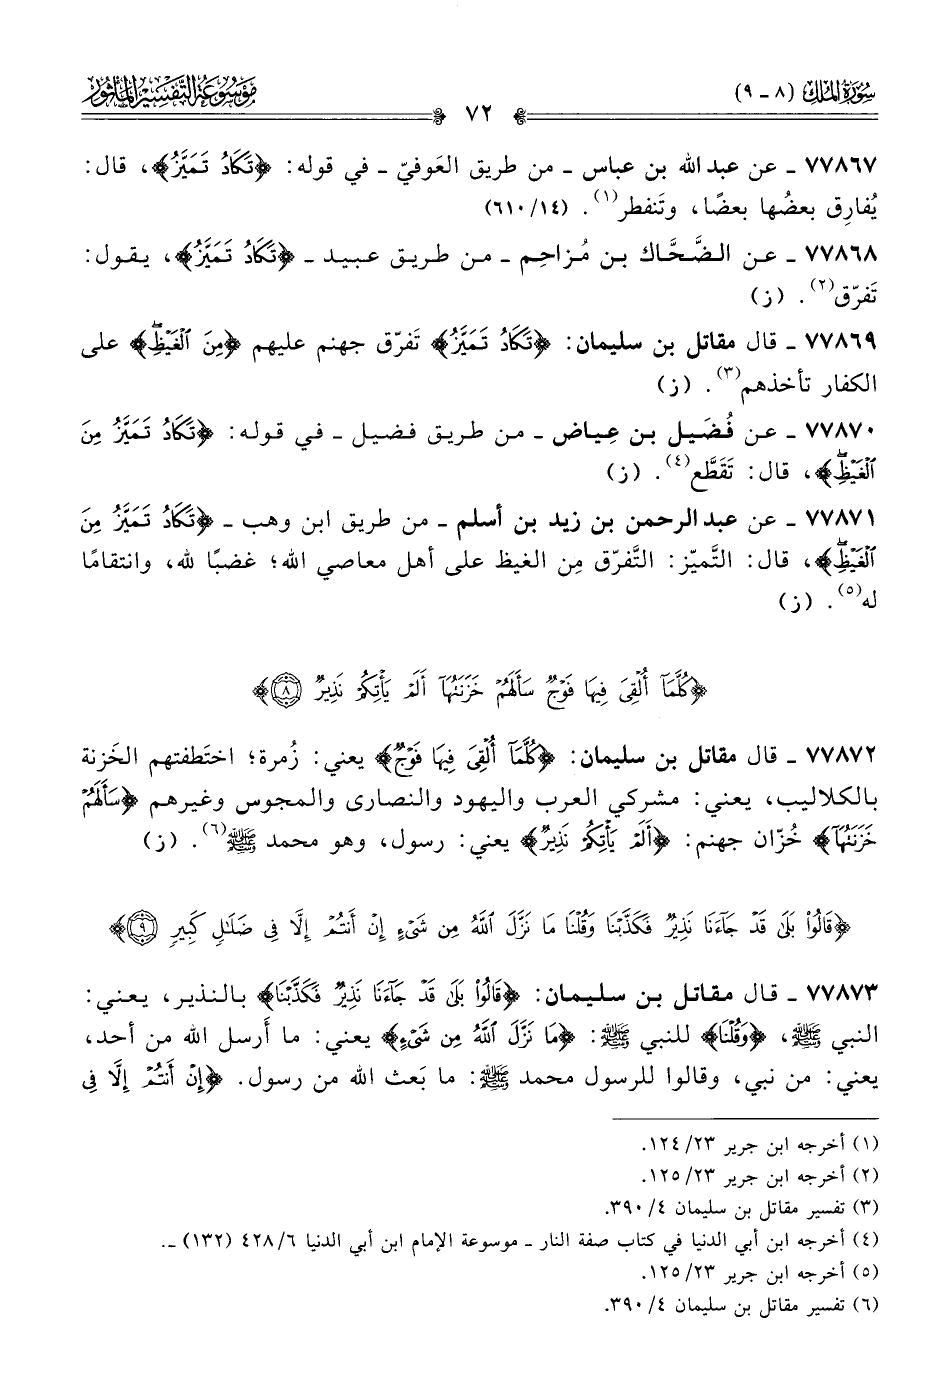 سورة الملك (٨ - ٩)
٧٢
موسوعة التفسير المأثور
٧٧٨٦٧ - عن عبد الله بن عباس - من طريق العَوفيّ - في قوله: ﴿تَكَادُ تَمَيَّزُ﴾، قال:
يُفارِق بعضُها بعضًا، وتَنفطر(١). (١٤/ ٦١٠)
٧٧٨٦٨ - عن الضَّحَّاك بن مُزاحِم - من طريق عبيد - ﴿تَكَادُ تَمَيَّزُ﴾، يقول:
تَفرّق(٢). (ز)
٧٧٨٦٩ - قال مقاتل بن سليمان: ﴿تَكَادُ تَمَيَّزُ﴾ تَفرّق جهنم عليهم ﴿مِنَ ٱلْغَيْظِۖ﴾ على
الكفار تأخذهم(٣). (ز)
٧٧٨٧٠ - عن فُضَيل بن عِياض - من طريق فضيل - في قوله: ﴿تَكَادُ تَمَيَّزُ مِنَ
ٱلْغَيْظِۖ﴾، قال: تَقَطَّع(٤). (ز)
٧٧٨٧١ - عن عبد الرحمن بن زيد بن أسلم - من طريق ابن وهب - ﴿تَكَادُ تَمَيَّزُ مِنَ
ٱلْغَيْظِۖ﴾، قال: التَّميّز: التَّفرّق مِن الغيظ على أهل معاصي الله؛ غضبًا لله، وانتقامًا
له(٥). (ز)
﴿كُلَّمَآ أُلْقِىَ فِيهَا فَوْجٌ سَأَلَهُمْ خَزَنَتُهَآ أَلَمْ يَأْتِكُمْ نَذِيرٌ ٨﴾
٧٧٨٧٢ - قال مقاتل بن سليمان: ﴿كُلَّمَآ أُلْقِىَ فِيهَا فَوْجٌ﴾ يعني: زُمرة؛ اختَطفتهم الخَزنة
بالكلاليب، يعني: مشركي العرب واليهود والنصارى والمجوس وغيرهم ﴿سَأَلَهُمْ
خَزَنَتُهَآ﴾ خُزّان جهنم: ﴿أَلَمْ يَأْتِكُمْ نَذِيرٌ﴾ يعني: رسول، وهو محمد ﷺ(٦). (ز)
﴿قَالُوا۟ بَلَىٰ قَدْ جَآءَنَا نَذِيرٌ فَكَذَّبْنَا وَقُلْنَا مَا نَزَّلَ ٱللَّهُ مِن شَىْءٍ إِنْ أَنتُمْ إِلَّا فِى ضَلَـٰلٍ كَبِيرٍ ٩﴾
٧٧٨٧٣ - قال مقاتل بن سليمان: ﴿قَالُوا۟ بَلَىٰ قَدْ جَآءَنَا نَذِيرٌ فَكَذَّبْنَا﴾ بالنذير، يعني:
النبي ﷺ، ﴿وَقُلْنَا﴾ للنبي ﷺ: ﴿مَا نَزَّلَ ٱللَّهُ مِن شَىْءٍ﴾ يعني: ما أَرسل الله من أحد،
يعني: من نبي، وقالوا للرسول محمد ﷺ: ما بَعث الله من رسول. ﴿إِنْ أَنتُمْ إِلَّا فِى
(١) أخرجه ابن جرير ٢٣/ ١٢٤.
(٢) أخرجه ابن جرير ٢٣/ ١٢٥.
(٣) تفسير مقاتل بن سليمان ٤/ ٣٩٠.
(٤) أخرجه ابن أبي الدنيا في كتاب صفة النار - موسوعة الإمام ابن أبي الدنيا ٦/ ٤٢٨ (١٣٢) -.
(٥) أخرجه ابن جرير ٢٣/ ١٢٥.
(٦) تفسير مقاتل بن سليمان ٤/ ٣٩٠.